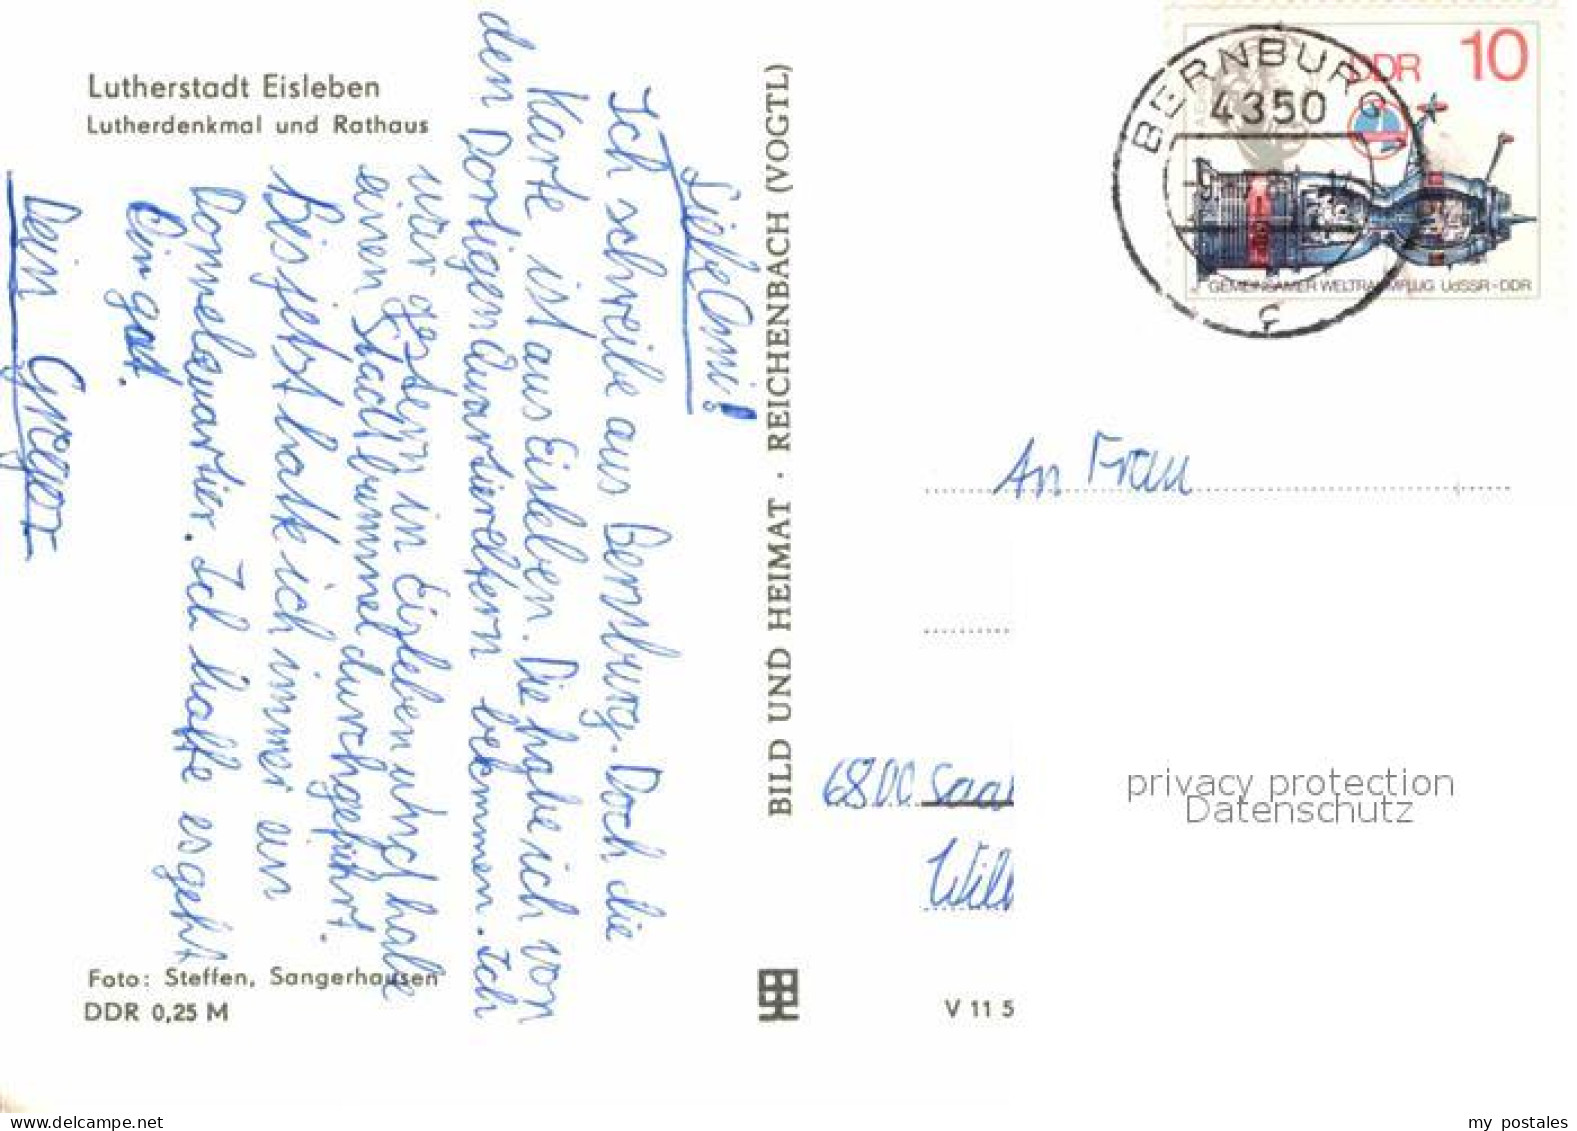 Lutherstadt Eisleben
Lutherdenkmal und Rathaus
Liebe Omi!
Ich schreibe aus Bernburg. Doch die
Karte ist aus Eisleben. Die habe ich von
den Dortigen Quartiereltern bekmmen. Ich
war gestern in Eisleben und habe
einen Stadtbummel durchgeführt.
Bis jetzt hatte ich immer ein
Quartier. Ich hoffe es geht
Dir gut.
Dein Gregor
Foto: Steffen, Sangerhausen
DDR 0,25 M
BILD UND HEIMAT · REICHENBACH (VOGTL)
BERNBURG
4350
c
DDR 10
GEMEINSAMER WELTRAUMFLUG UdSSR-DDR
An Frau
6800 Saal
Wilh
V 11 5
privacy protection
Datenschutz
delcampe.net
my_postales